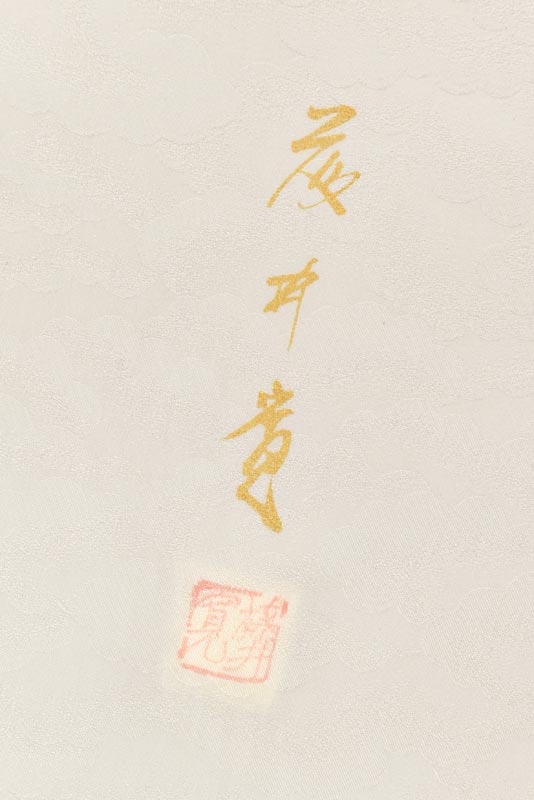 藤井寛
藤井寛